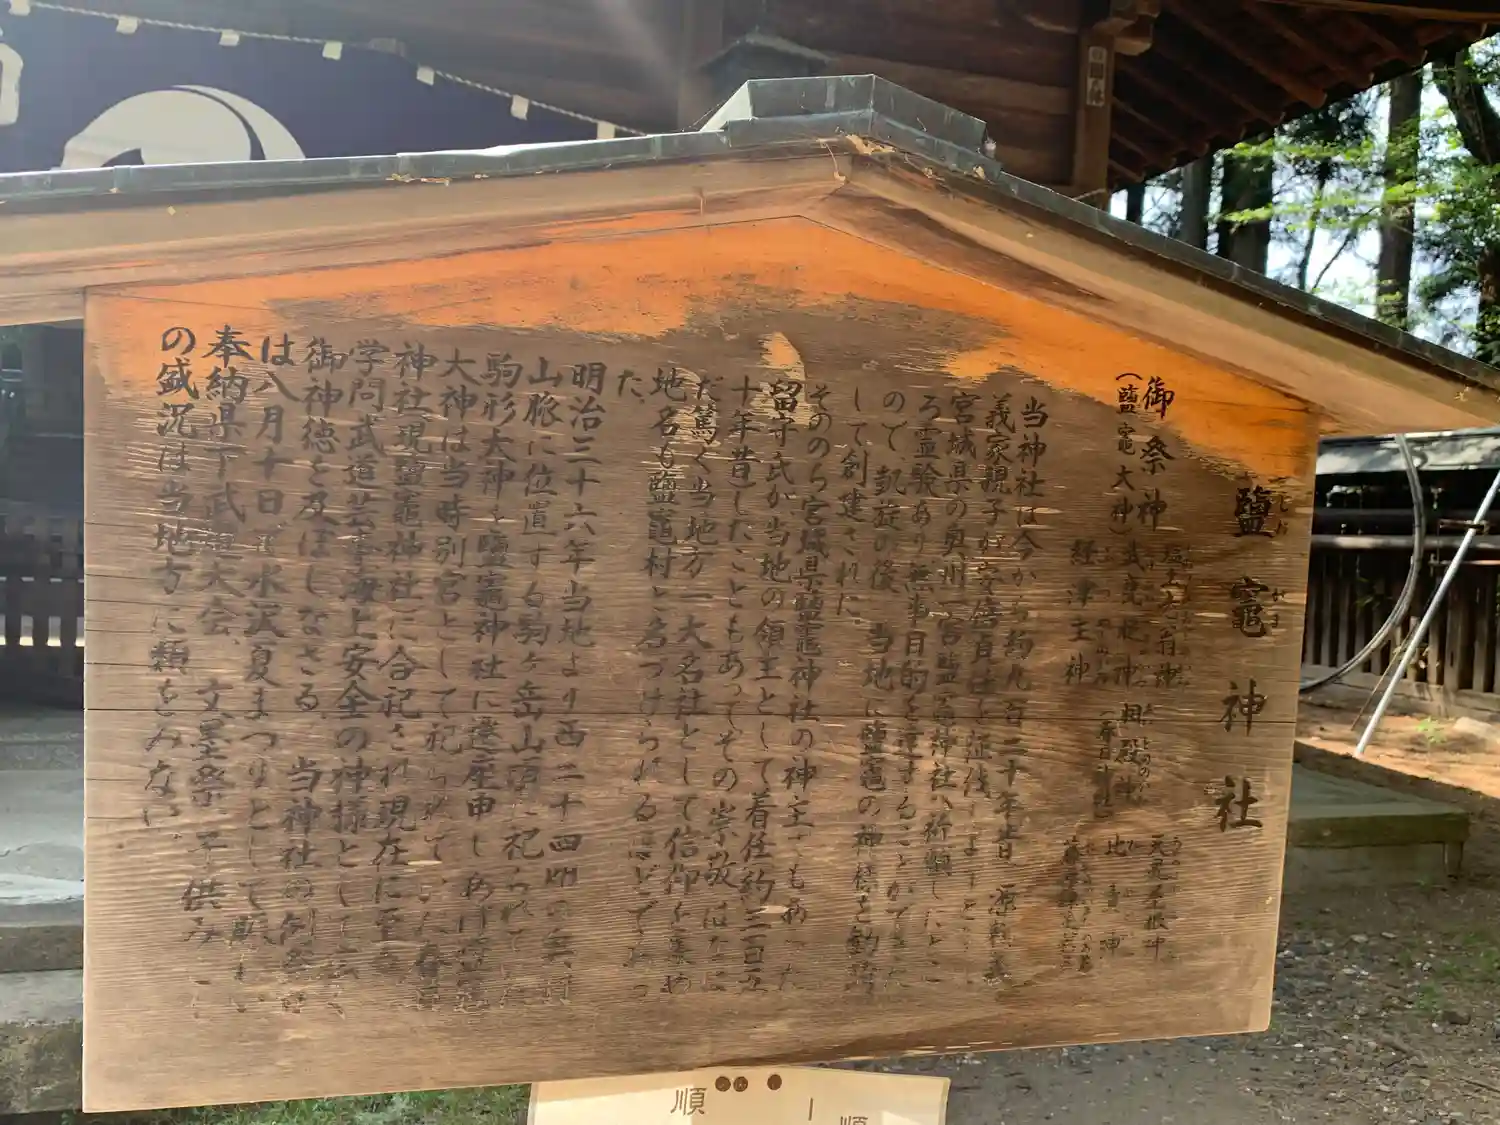 鹽竈神社
しおがま
御祭神
(鹽竈大神)
塩土老翁神
武甕槌神
経津主神
相殿神
(春日神社)
天児屋根神
比売神
当神社は今から約九百二十年昔 源頼義
義家親子が安倍貞任を征伐
宮城県の奥州一宮鹽竈神社へ祈願したとこ
ろ霊験あり無事目的を達することができた
ので 凱旋の後 当地に鹽竈の神様を勧請
して創建された。
そののち宮城県鹽竈神社の神主でもあった
留守氏が当地の領主として着任約三百五
十年昔したこともあってその崇敬はなはは
だ篤く当地方一大名社として信仰を集め
地名も鹽竈村と名づけられるほどであっ
た。
明治三十六年当地より西二十四粁の奥羽
山脈に位置する駒ヶ岳山頂に祀られていた
駒形大神を鹽竈神社に遷座申しあげ鹽竈
大神は当時別宮として祀られていた春日
神社現鹽竈神社に合祀され現在に至る
学問武道芸事海上安全の神様として
御神徳を及ぼしなさる 当神社の例祭
は八月十日で水沢夏まつりとして賑
奉納県下武道大会、文墨祭 子供み
の盛況は当地方に類をみない。
順
順